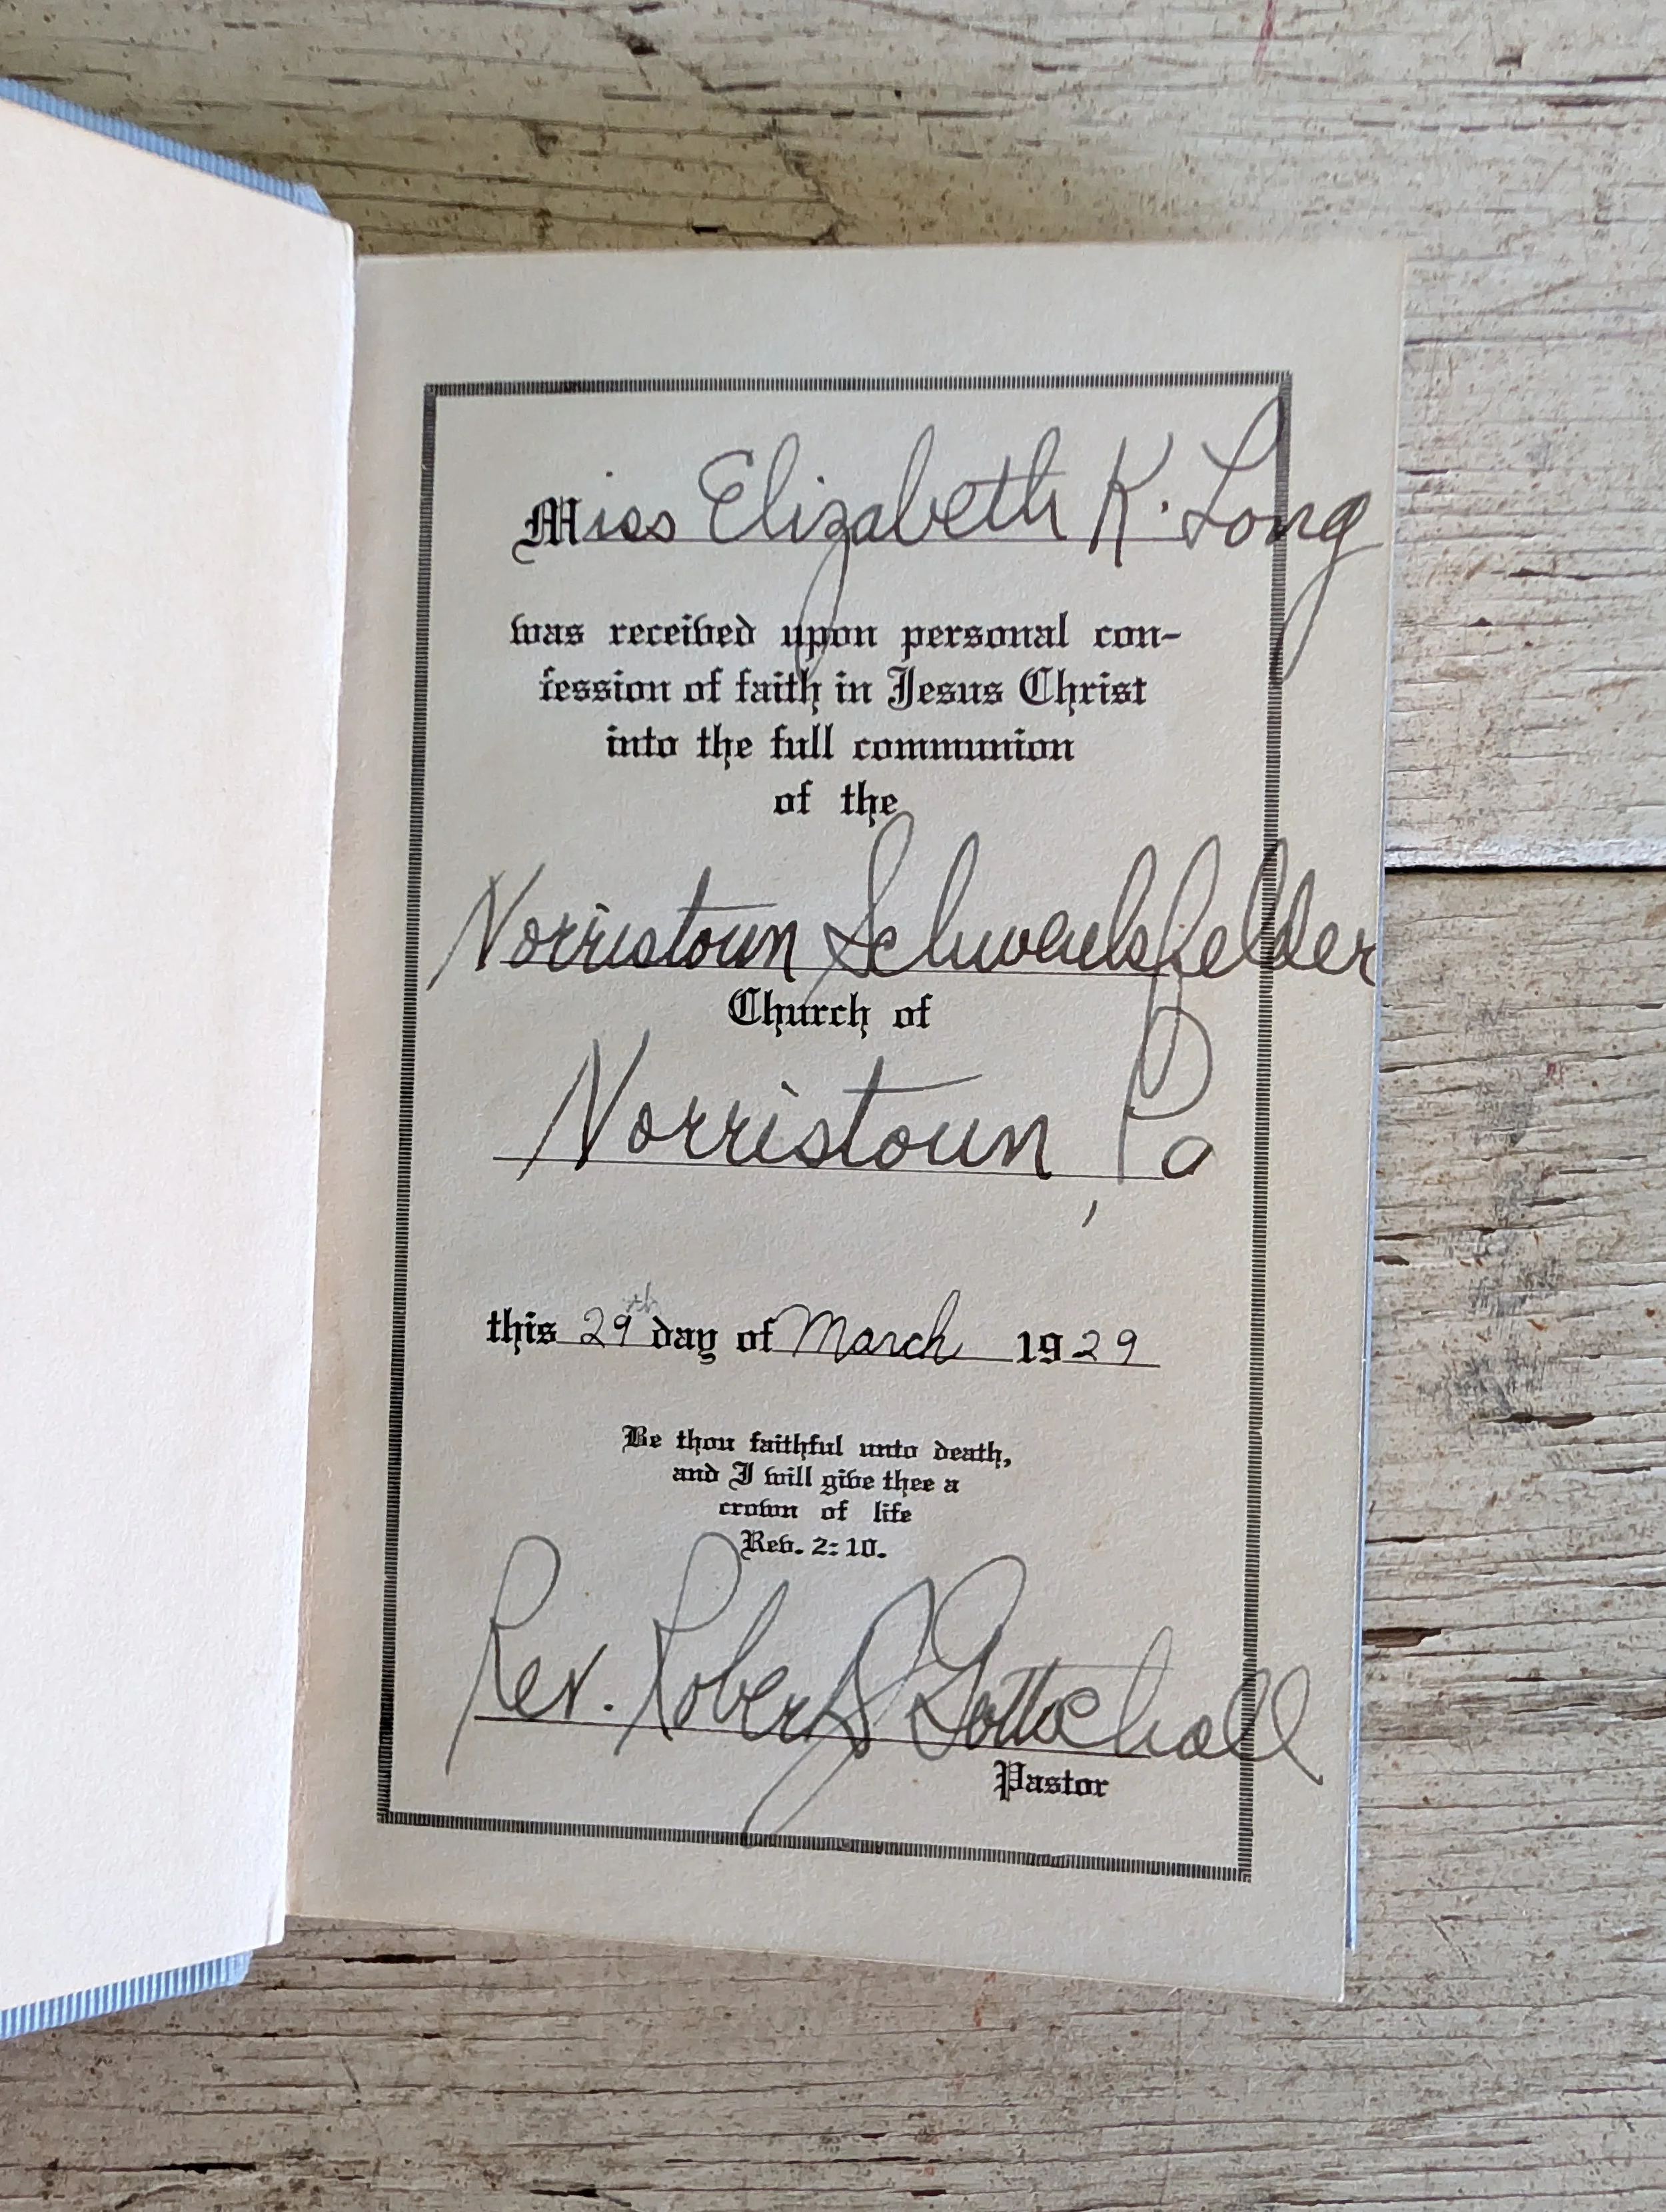 Miss Elizabeth K. Long
was received upon personal con-
fession of faith in Jesus Christ
into the full communion
of the
Norristown Schwenkfelder
Church of
Norristown, Pa
this 29th day of March 1929
Be thou faithful unto death,
and I will give thee a
crown of life
Rev. 2:10.
Rev. Robert S Gottschall
Pastor